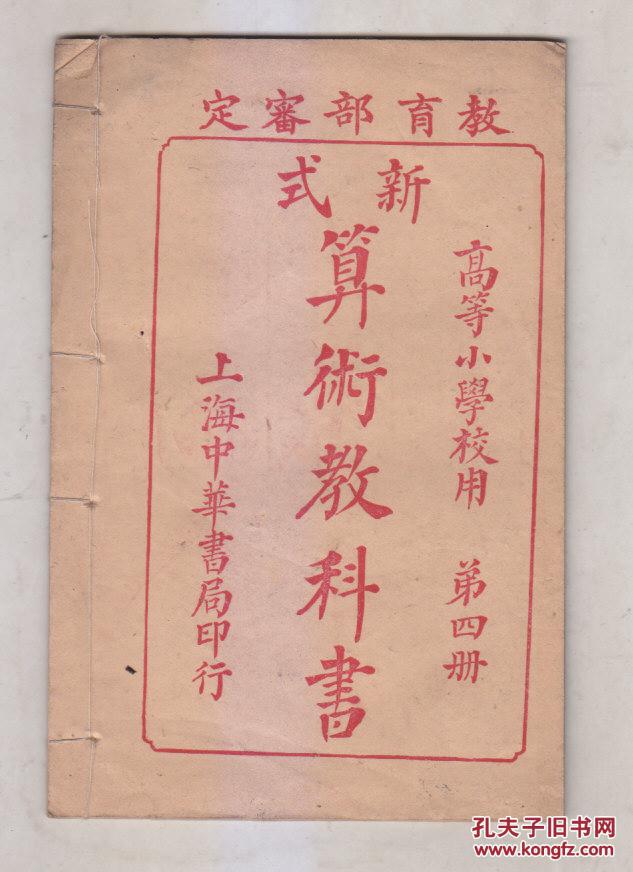 教育部審定
新式
算術教科書
高等小學校用 第四册
上海中華書局印行
孔夫子旧书网
www.kongfz.com